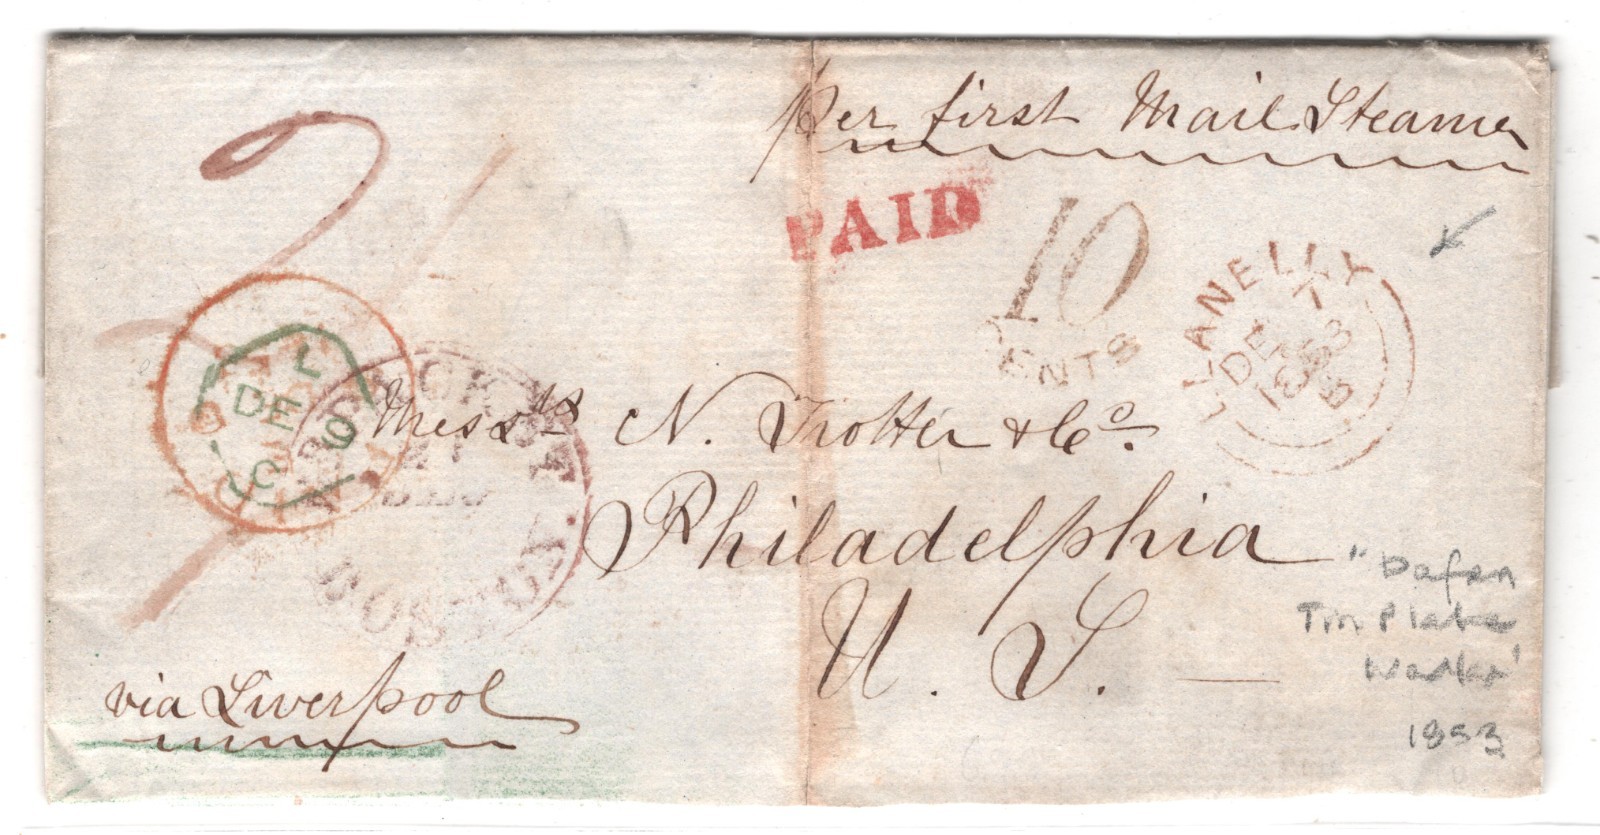 per first Mail Steamer
PAID
10
CENTS
LLANELLY
DE 7
1853
B
2/
L
DE
9
C
BR. PACKET
BOSTON
Messrs N. Trotter & Co.
Philadelphia
U. S. —
via Liverpool
"Dafen
Tin Plate
Works'
1853